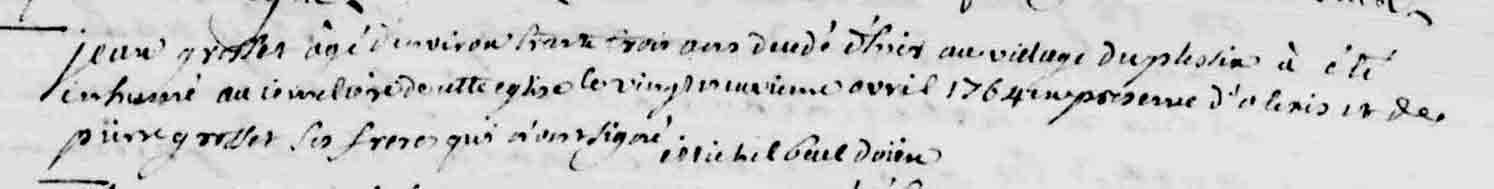 jean grosset âgé d'environ trante trois ans decedé d'hier au village du plessix à été
inhumé au cimetière de cette eglise le vingt neuvieme avril 1764 en presence d'alexis et de
pierre grosset ses freres qui n'ont signé michel doien